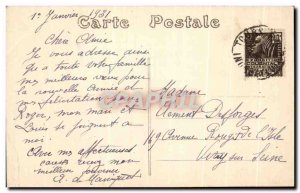 1er Janvier 1931
Carte Postale
Chère Amie
Je vous adresse ainsi
qu'à toute votre famille
mes meilleurs vœux pour
la nouvelle année et
félicitations pour
Roger, mon mari et
Louis se joignent à
moi.
Avec mes affectueuses
mon
meilleur souvenir
A. de
Madame
Clément Desforges
169 Avenue Rouget de l'Isle
Vitry sur Seine